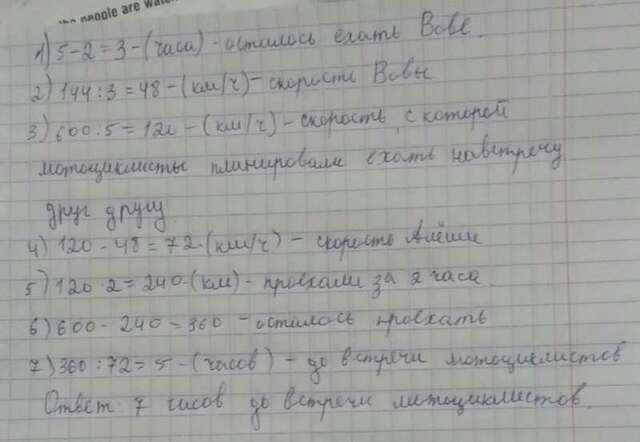 the people are wat
1) 5-2=3-(часа) - осталось ехать Вове.
2) 144:3=48-(км/ч)-скорость Вовы
3) 600:5=120-(км/ч)-скорость, с которой
мотоциклисты планировали ехать навстречу
друг другу.
4) 120-48=72-(км/ч)-скорость Алёши
5) 120·2=240-(км)-проехали за 2 часа.
6) 600-240=360-осталось проехать
7) 360:72=5-(часов)-до встречи мотоциклистов
Ответ: 7 часов до встречи мотоциклистов.